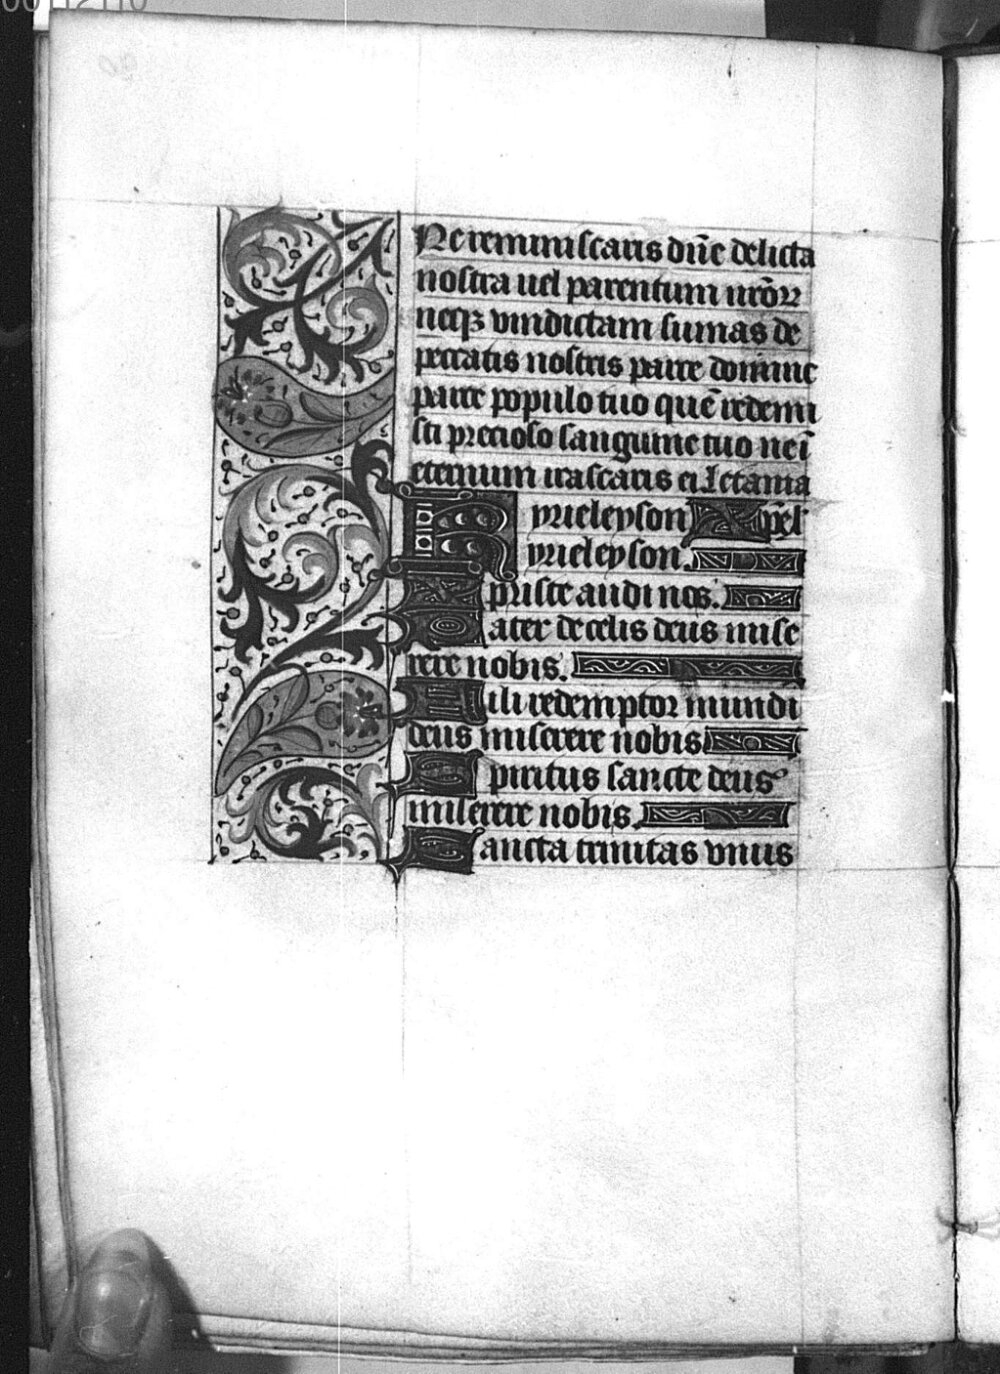 00112110
Ne reminiscaris dñe delicta
nostra uel parentum nrõꝝ
neqꝫ vindictam sumas de
peccatis nostris parce domine
parce populo tuo quē redemi
sti precioso sanguine tuo ne ĩ
eternum irascaris ei Letania
Kyrieleyson Xpel
Kyrieleyson.
Xpriste audi nos.
Pater de celis deus mise
rere nobis.
Fili redemptor mundi
deus miserere nobis
Spiritus sancte deus
miserere nobis.
Sancta trinitas vnus